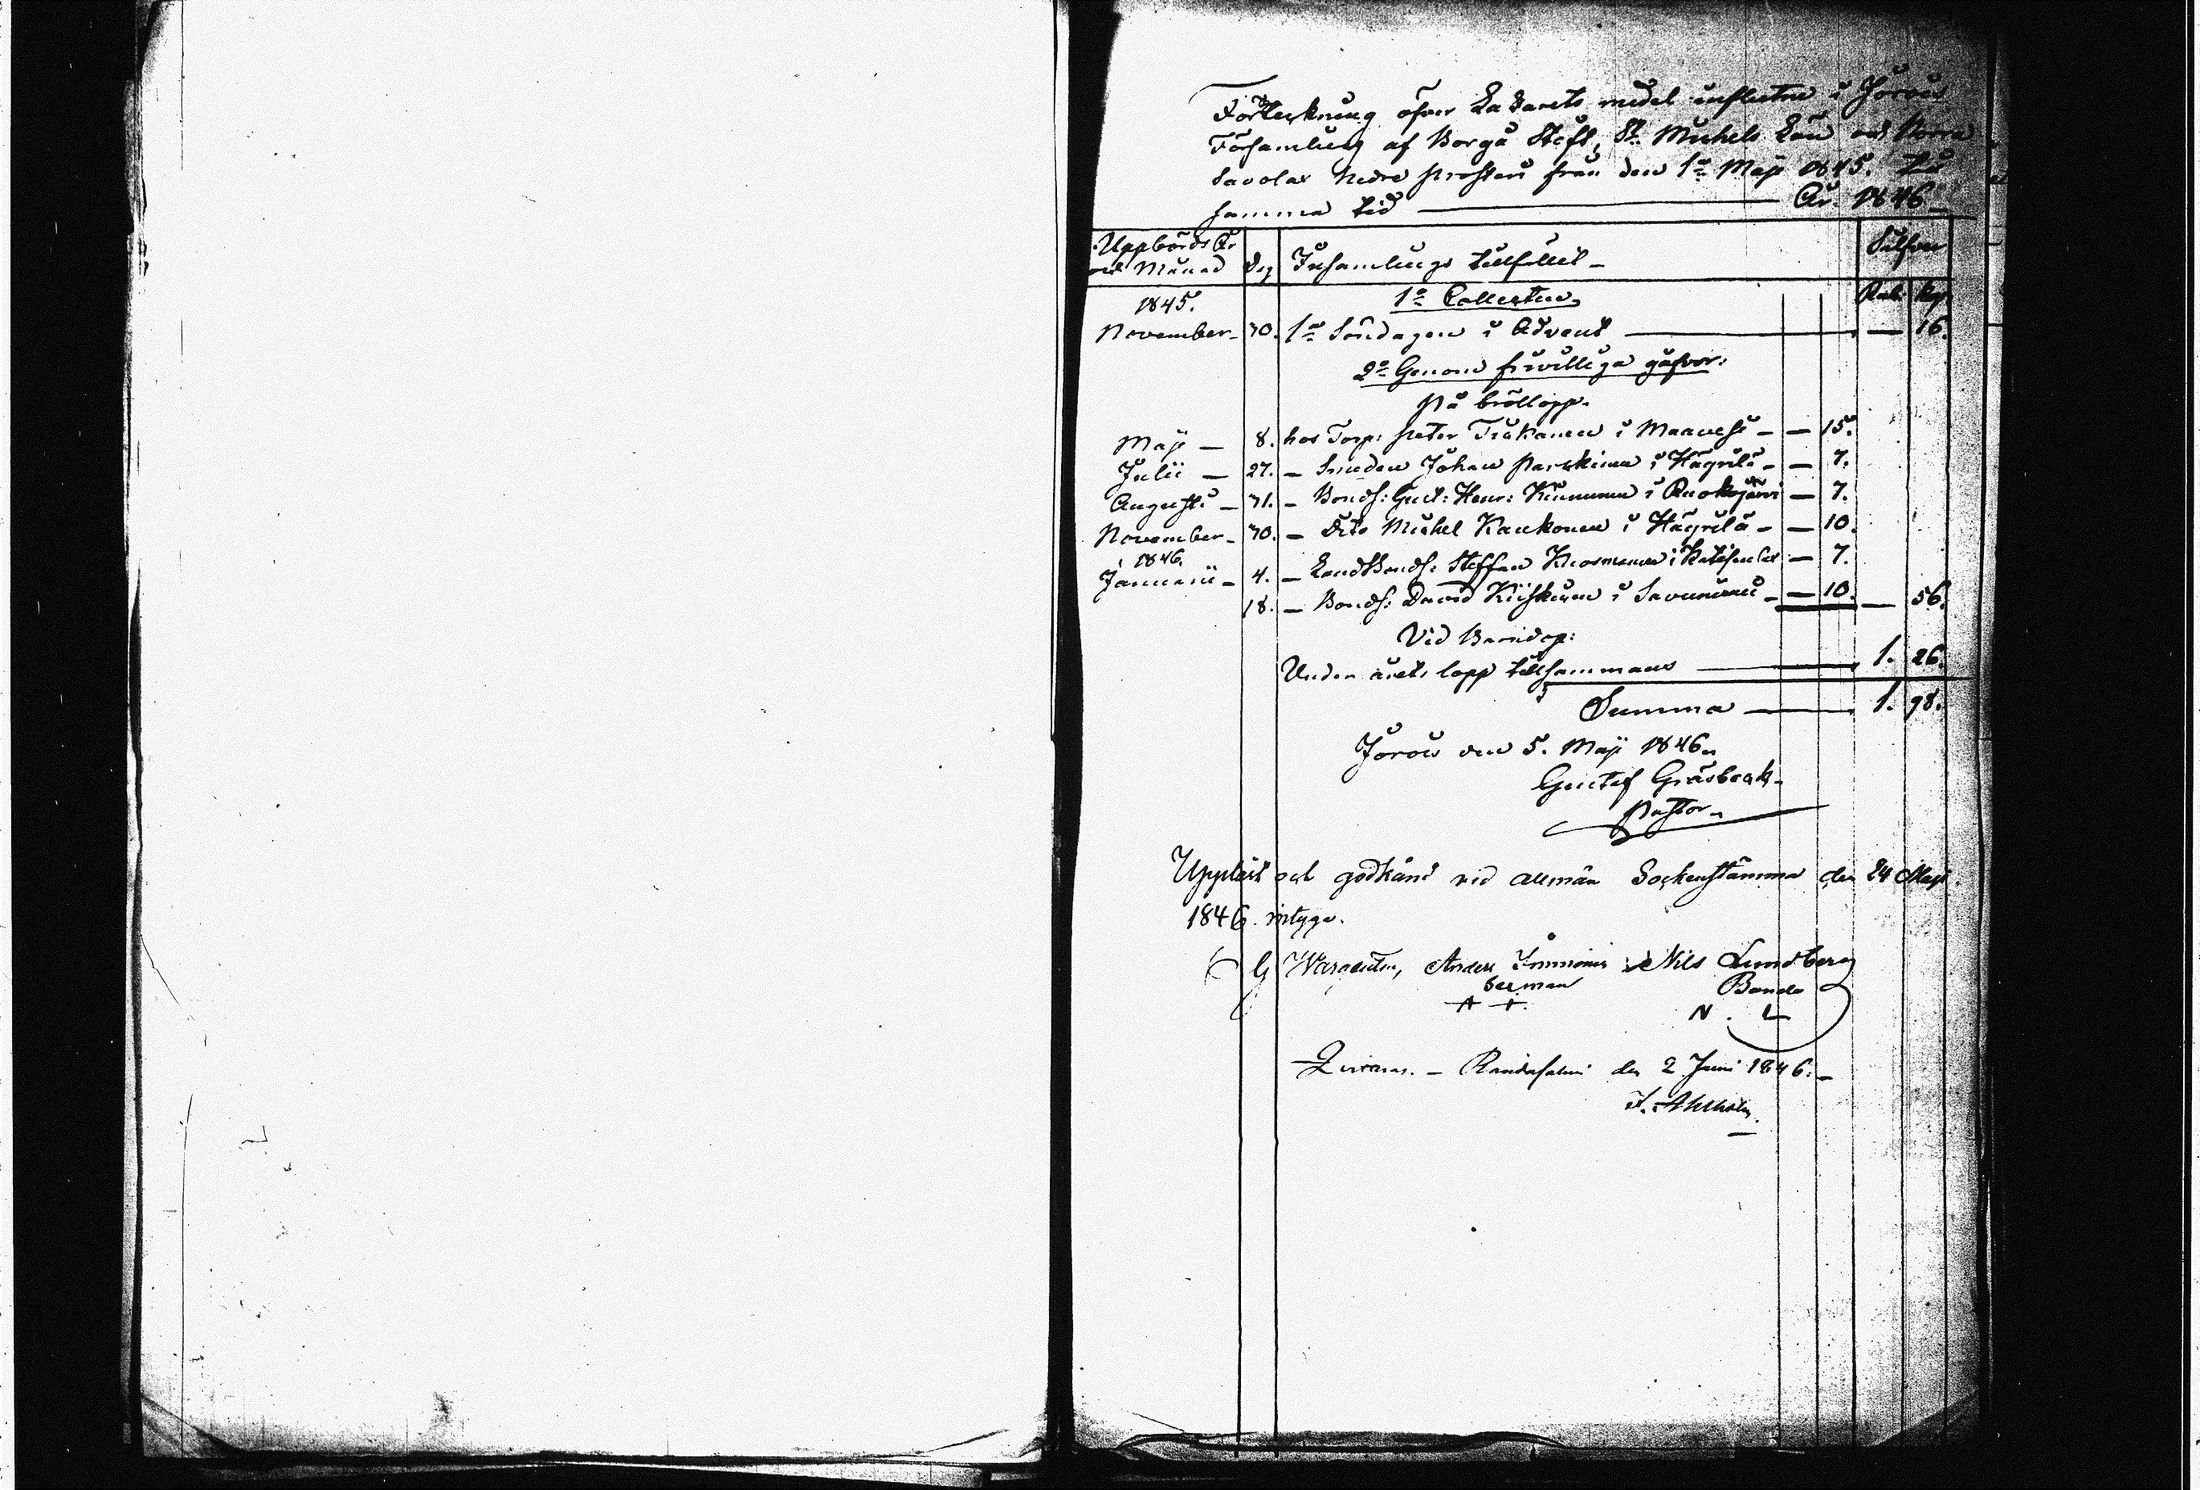 Förteckning öfver Lazarets medel influtne i Jorois
Församling af Borgå Stift, St. Michels Län och Norra
Savolax Nedre prosteri från den 1ª Maji 1845. till
samma tid — År. 1846 –
Uppbörds År och Månad Dag Insamlings tillfället – Silfver
1845. 1º Collecten. Rub: kop:
November – 30. 1ª Söndagen i Advent — — 16.
2º Genom friwilliga gåfvor:
På bröllopp.
Maji — 8. hos Torp: Peter Tiukanen i Maavesi – — 15.
Julii — 27. – Smeden Johan Parkinen i Häyrilä – — 7.
Augusti – 31. – Bonds: Gust: Henr: Kinnunen i Ruokojärvi — 7.
November – 30. – Dito Michel Kaukonen i Häyrilä – — 10.
1846.
Januarii – 4. – Landbonds: Steffan Kosmanen i — 7.
18. – Bonds: David Kiiskinen i Savuniemi – — 10. — 56.
Vid Barndop:
Under årets lopp tillsammans — 1. 26.
Summa — 1. 98.
Jorois den 5. Maji 1846.
Gustaf Gråsbeck.
Pastor.
Uppläst och godkänd vid allmän Sockenstämma den 24 Maji
1846. intyga.
G Wargentin, Anders Immonen Nils Lundberg
sexman Bonde
A I. N. L
– Randasalmi den 2 Juni 1846. –
Ahlholm.